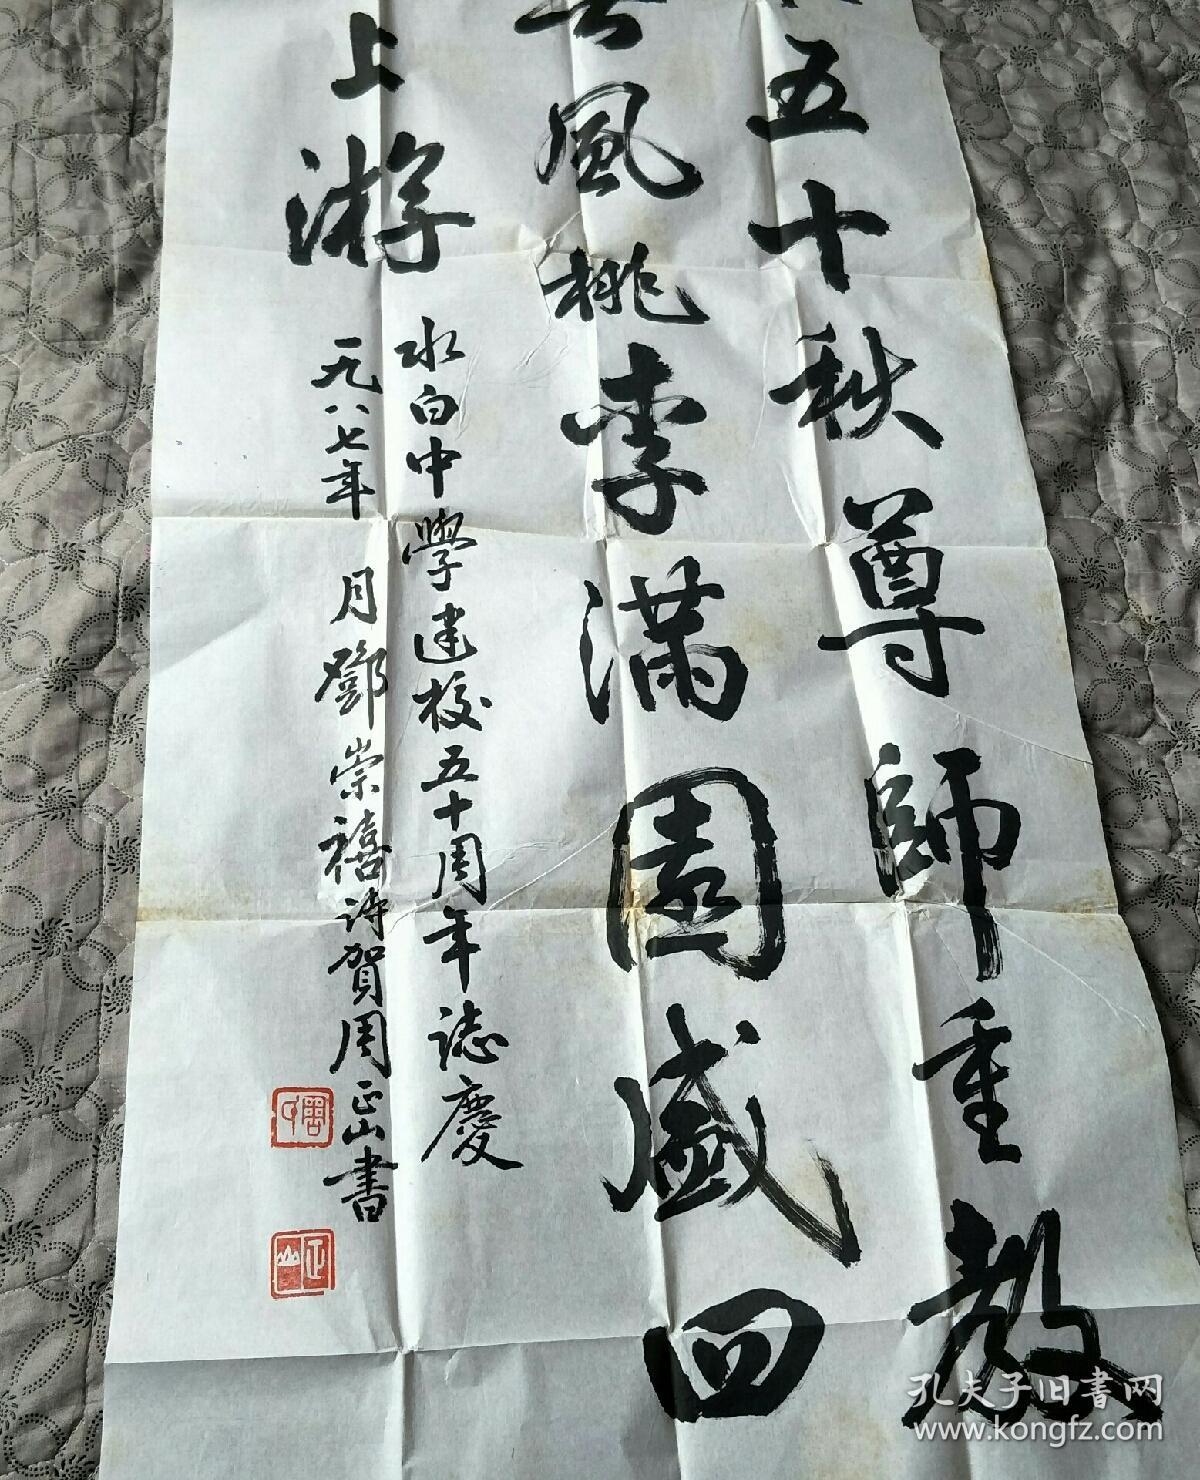 五十秋尊師重教
風桃李滿園盛四
上游
水白中學建校五十周年誌慶
一九八七年 月鄧崇禧詩賀周正山書
周
正山
孔夫子旧書网
www.kongfz.com